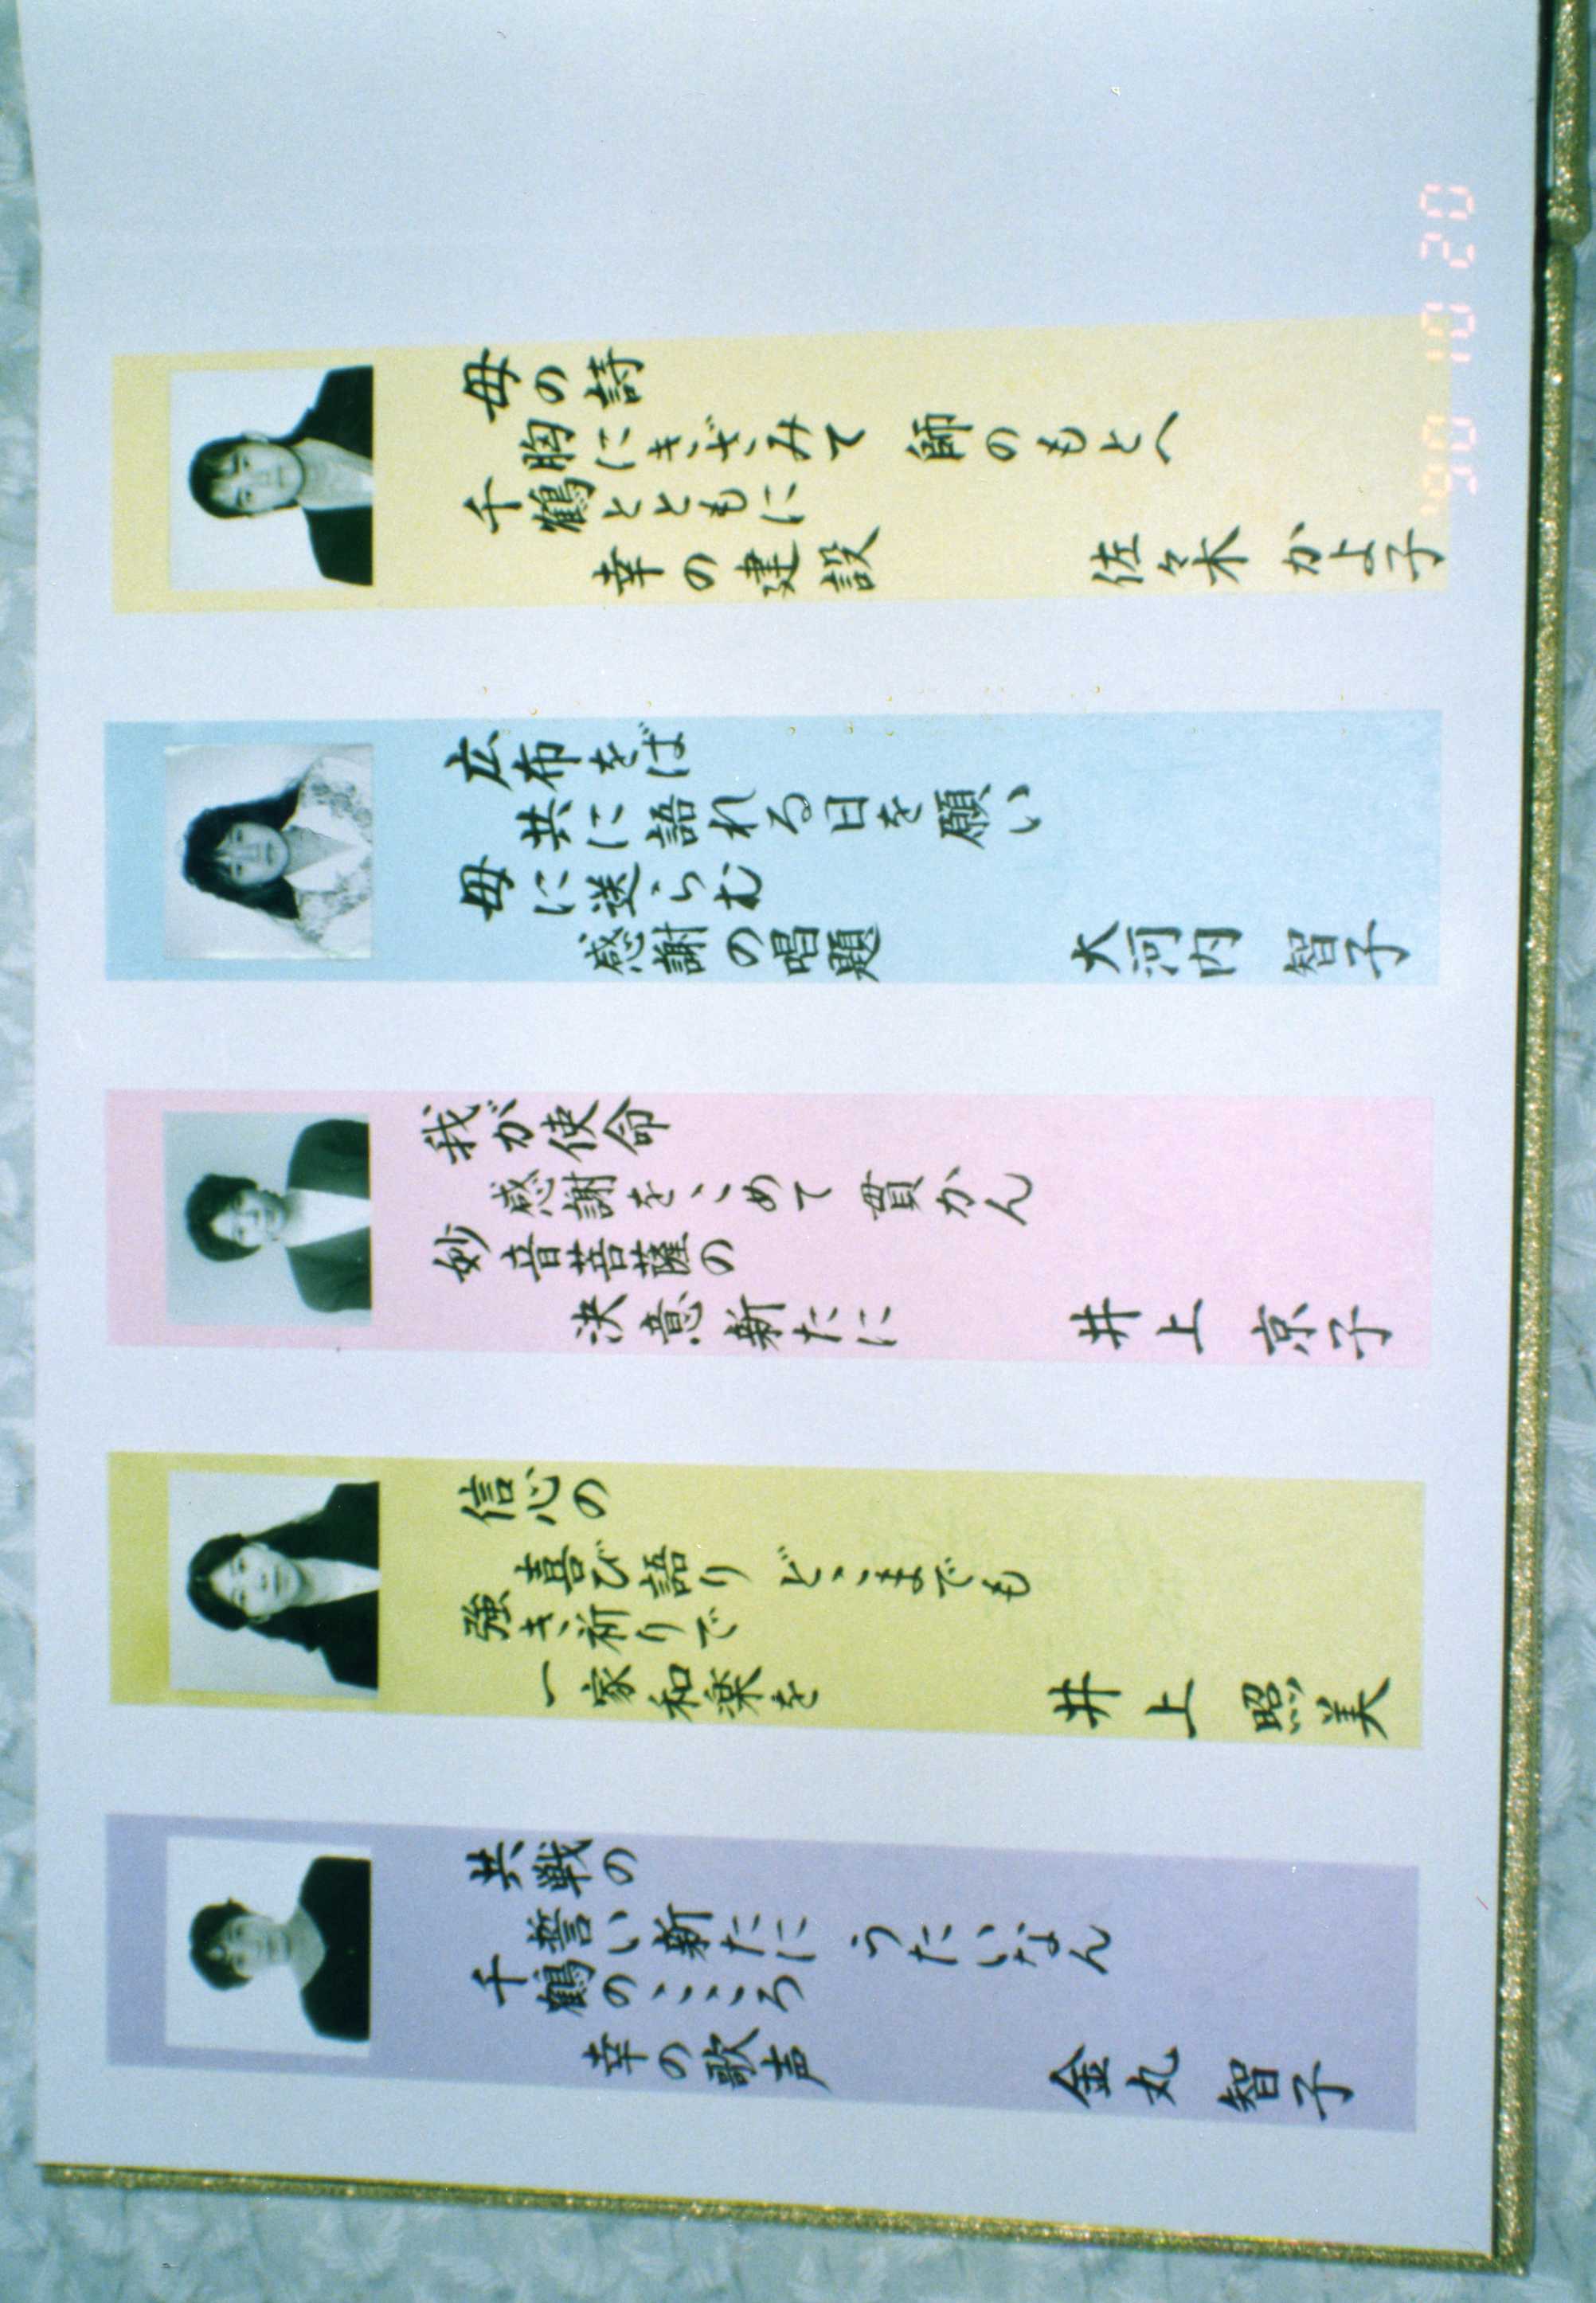 母の詩
胸にきざみて 師のもとへ
千鶴とともに
幸の建設
佐々木 かよ子
広布をば
共に語れる日を願い
母に送らむ
感謝の唱題
大河内 智子
我が使命
感謝をこめて 貫かん
妙音菩薩の
決意新たに
井上 京子
信心の
喜び語り どこまでも
強き祈りで
一家和楽を
井上 照美
共戦の
誓い新たに うたいなん
千鶴のこころ
幸の歌声
金丸 智子
'90 10 20